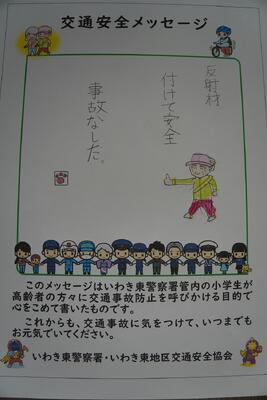 交通安全メッセージ
反射材
付けて安全
事故なした。
このメッセージはいわき東警察署管内の小学生が
高齢者の方々に交通事故防止を呼びかける目的で
心をこめて書いたものです。
これからも、交通事故に気をつけて、いつまでも
お元気でいてください。
いわき東警察署・いわき東地区交通安全協会